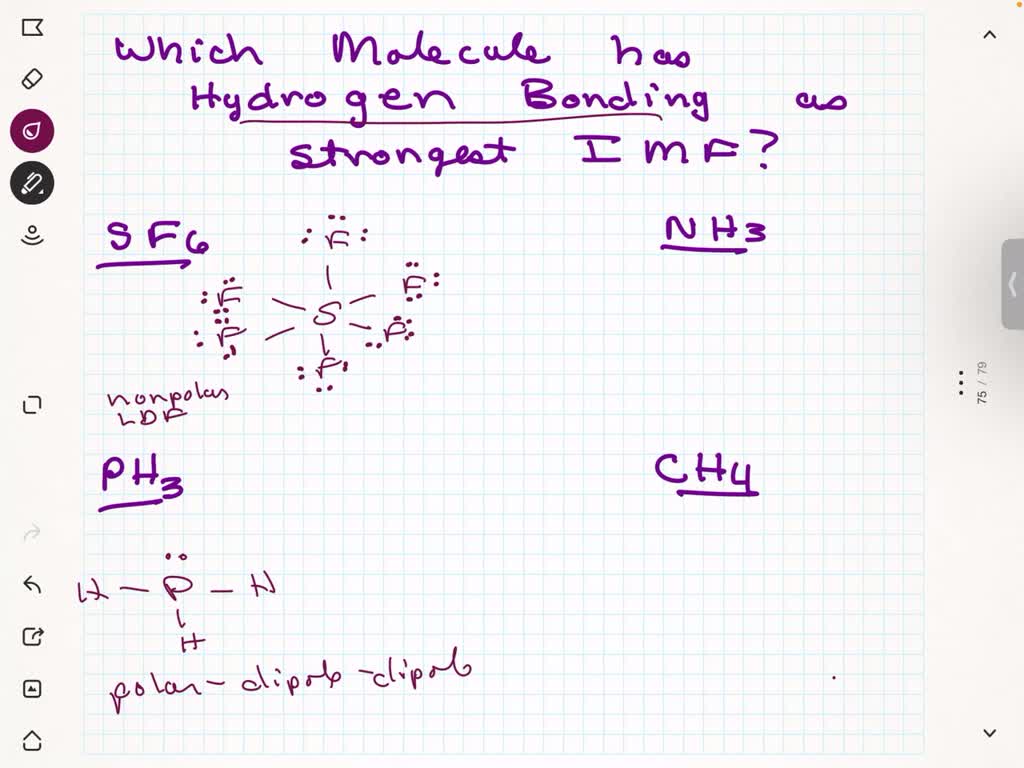 Which Molecule has
Hydrogen Bonding as
strongest IMF?
SF6
NH3
F
F
F
S
F
F
F
nonpolar
LDF
PH3
CH4
H - P - H
H
polar - dipole - dipole
75 / 79